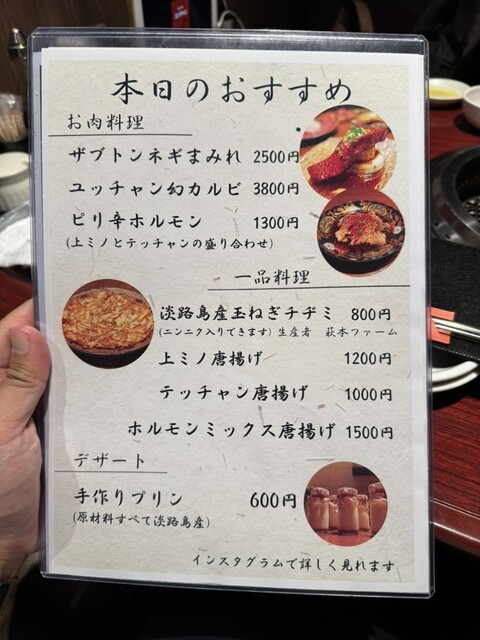 本日のおすすめ
お肉料理
ザブトンネギまみれ 2500円
ユッチャン幻カルビ 3800円
ピリ辛ホルモン 1300円
(上ミノとテッチャンの盛り合わせ)
一品料理
淡路島産玉ねぎチヂミ 800円
(ニンニク入りできます) 生産者 萩本ファーム
上ミノ唐揚げ 1200円
テッチャン唐揚げ 1000円
ホルモンミックス唐揚げ 1500円
デザート
手作りプリン 600円
(原材料すべて淡路島産)
インスタグラムで詳しく見れます